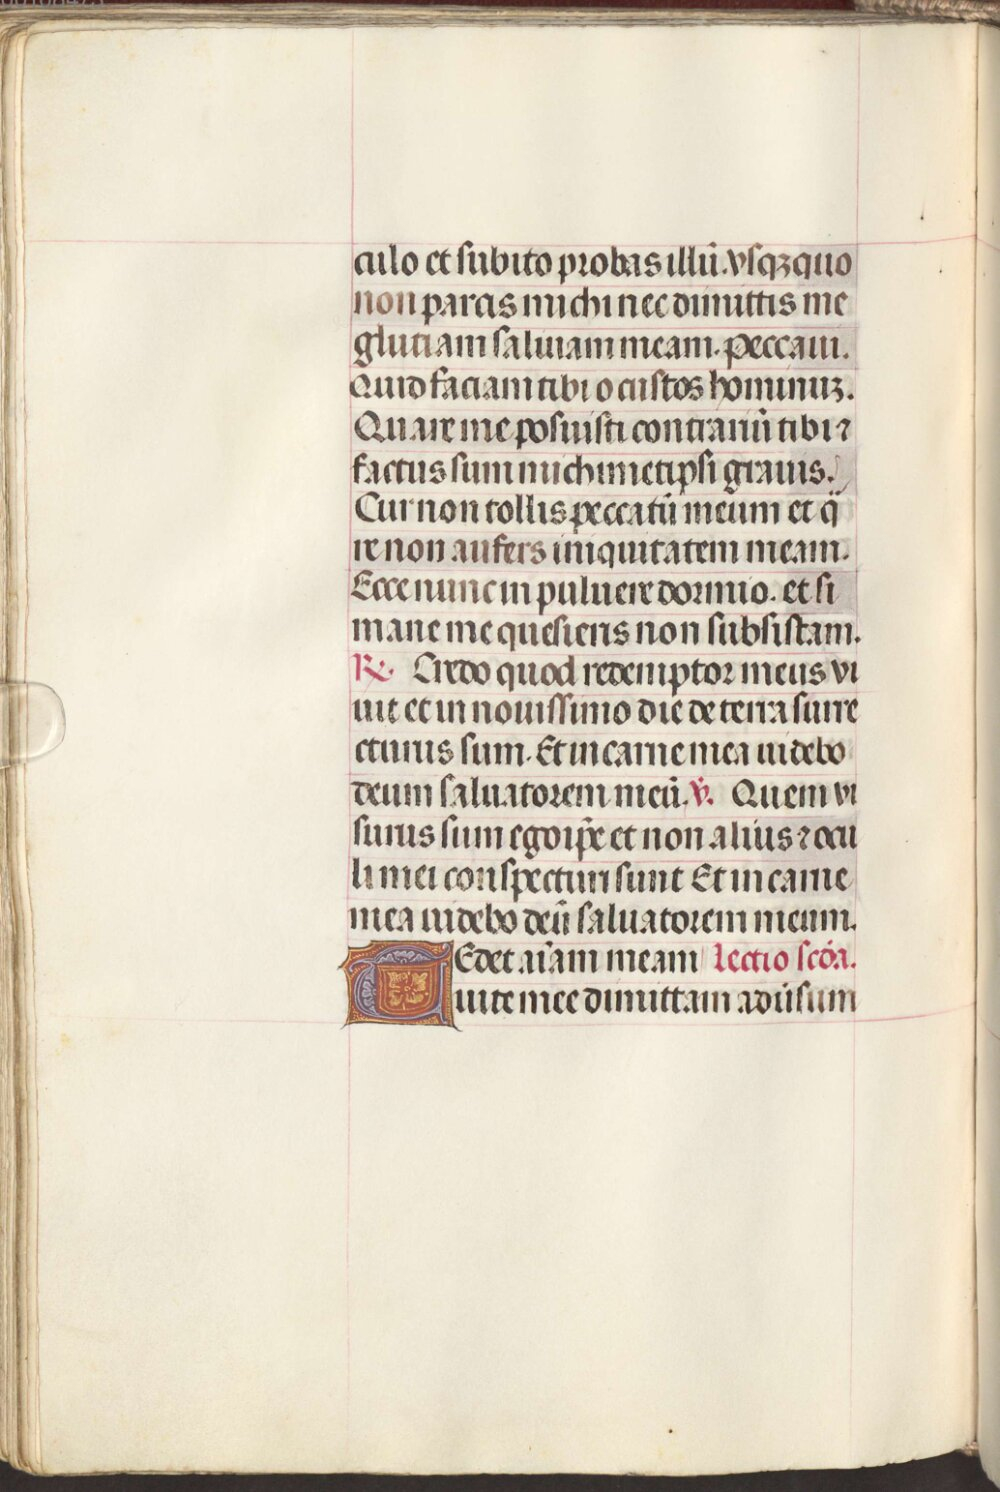 culo et subito probas illū. vsqꝫ quo
non parcis michi nec dimittis me
glutiam saliuam meam. peccaui.
Quid faciam tibi o custos hominuꝫ.
Quare me posuisti contrariū tibi ⁊
factus sum michimetipsi grauis.
Cur non tollis peccatū meum et q̄
re non aufers iniquitatem meam.
Ecce nunc in puluere dormio. et si
mane me quesieris non subsistam.
℟. Credo quod redemptor meus vi
uit et in nouissimo die de terra surre
cturus sum. Et in carne mea uidebo
deum saluatorem meū. ℣. Quem vi
surus sum ego ip̄e et non alius ⁊ ocu
li mei conspecturi sunt Et in carne
mea uidebo deū saluatorem meum.
TEdet aīam meam lectio scd̄a.
uite mee dimittam adūsum